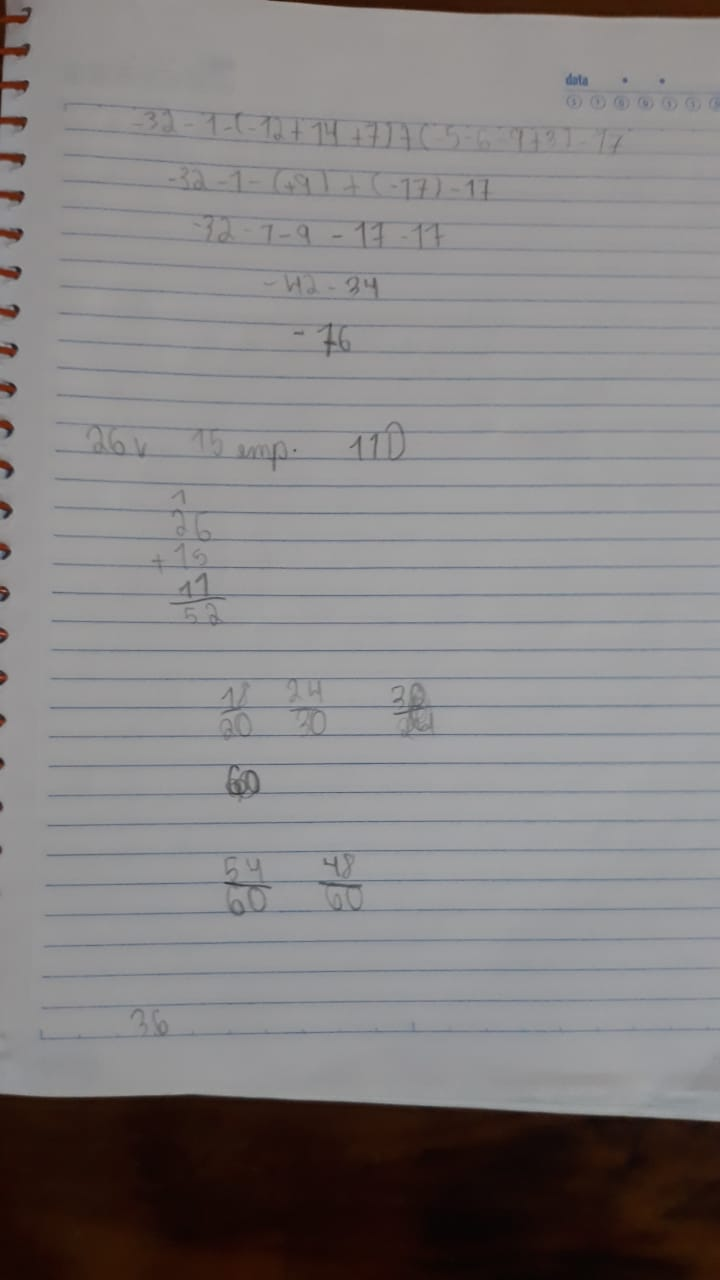 data
-32-1-(-12+14+7)+(-5-6-9+3)-17
-32-1-(+9)+(-17)-17
-32-1-9-17-17
-42-34
-76
26v 15 emp. 11D
1
26
+15
11
52
18 24
20 30
60
54 48
60 60
36